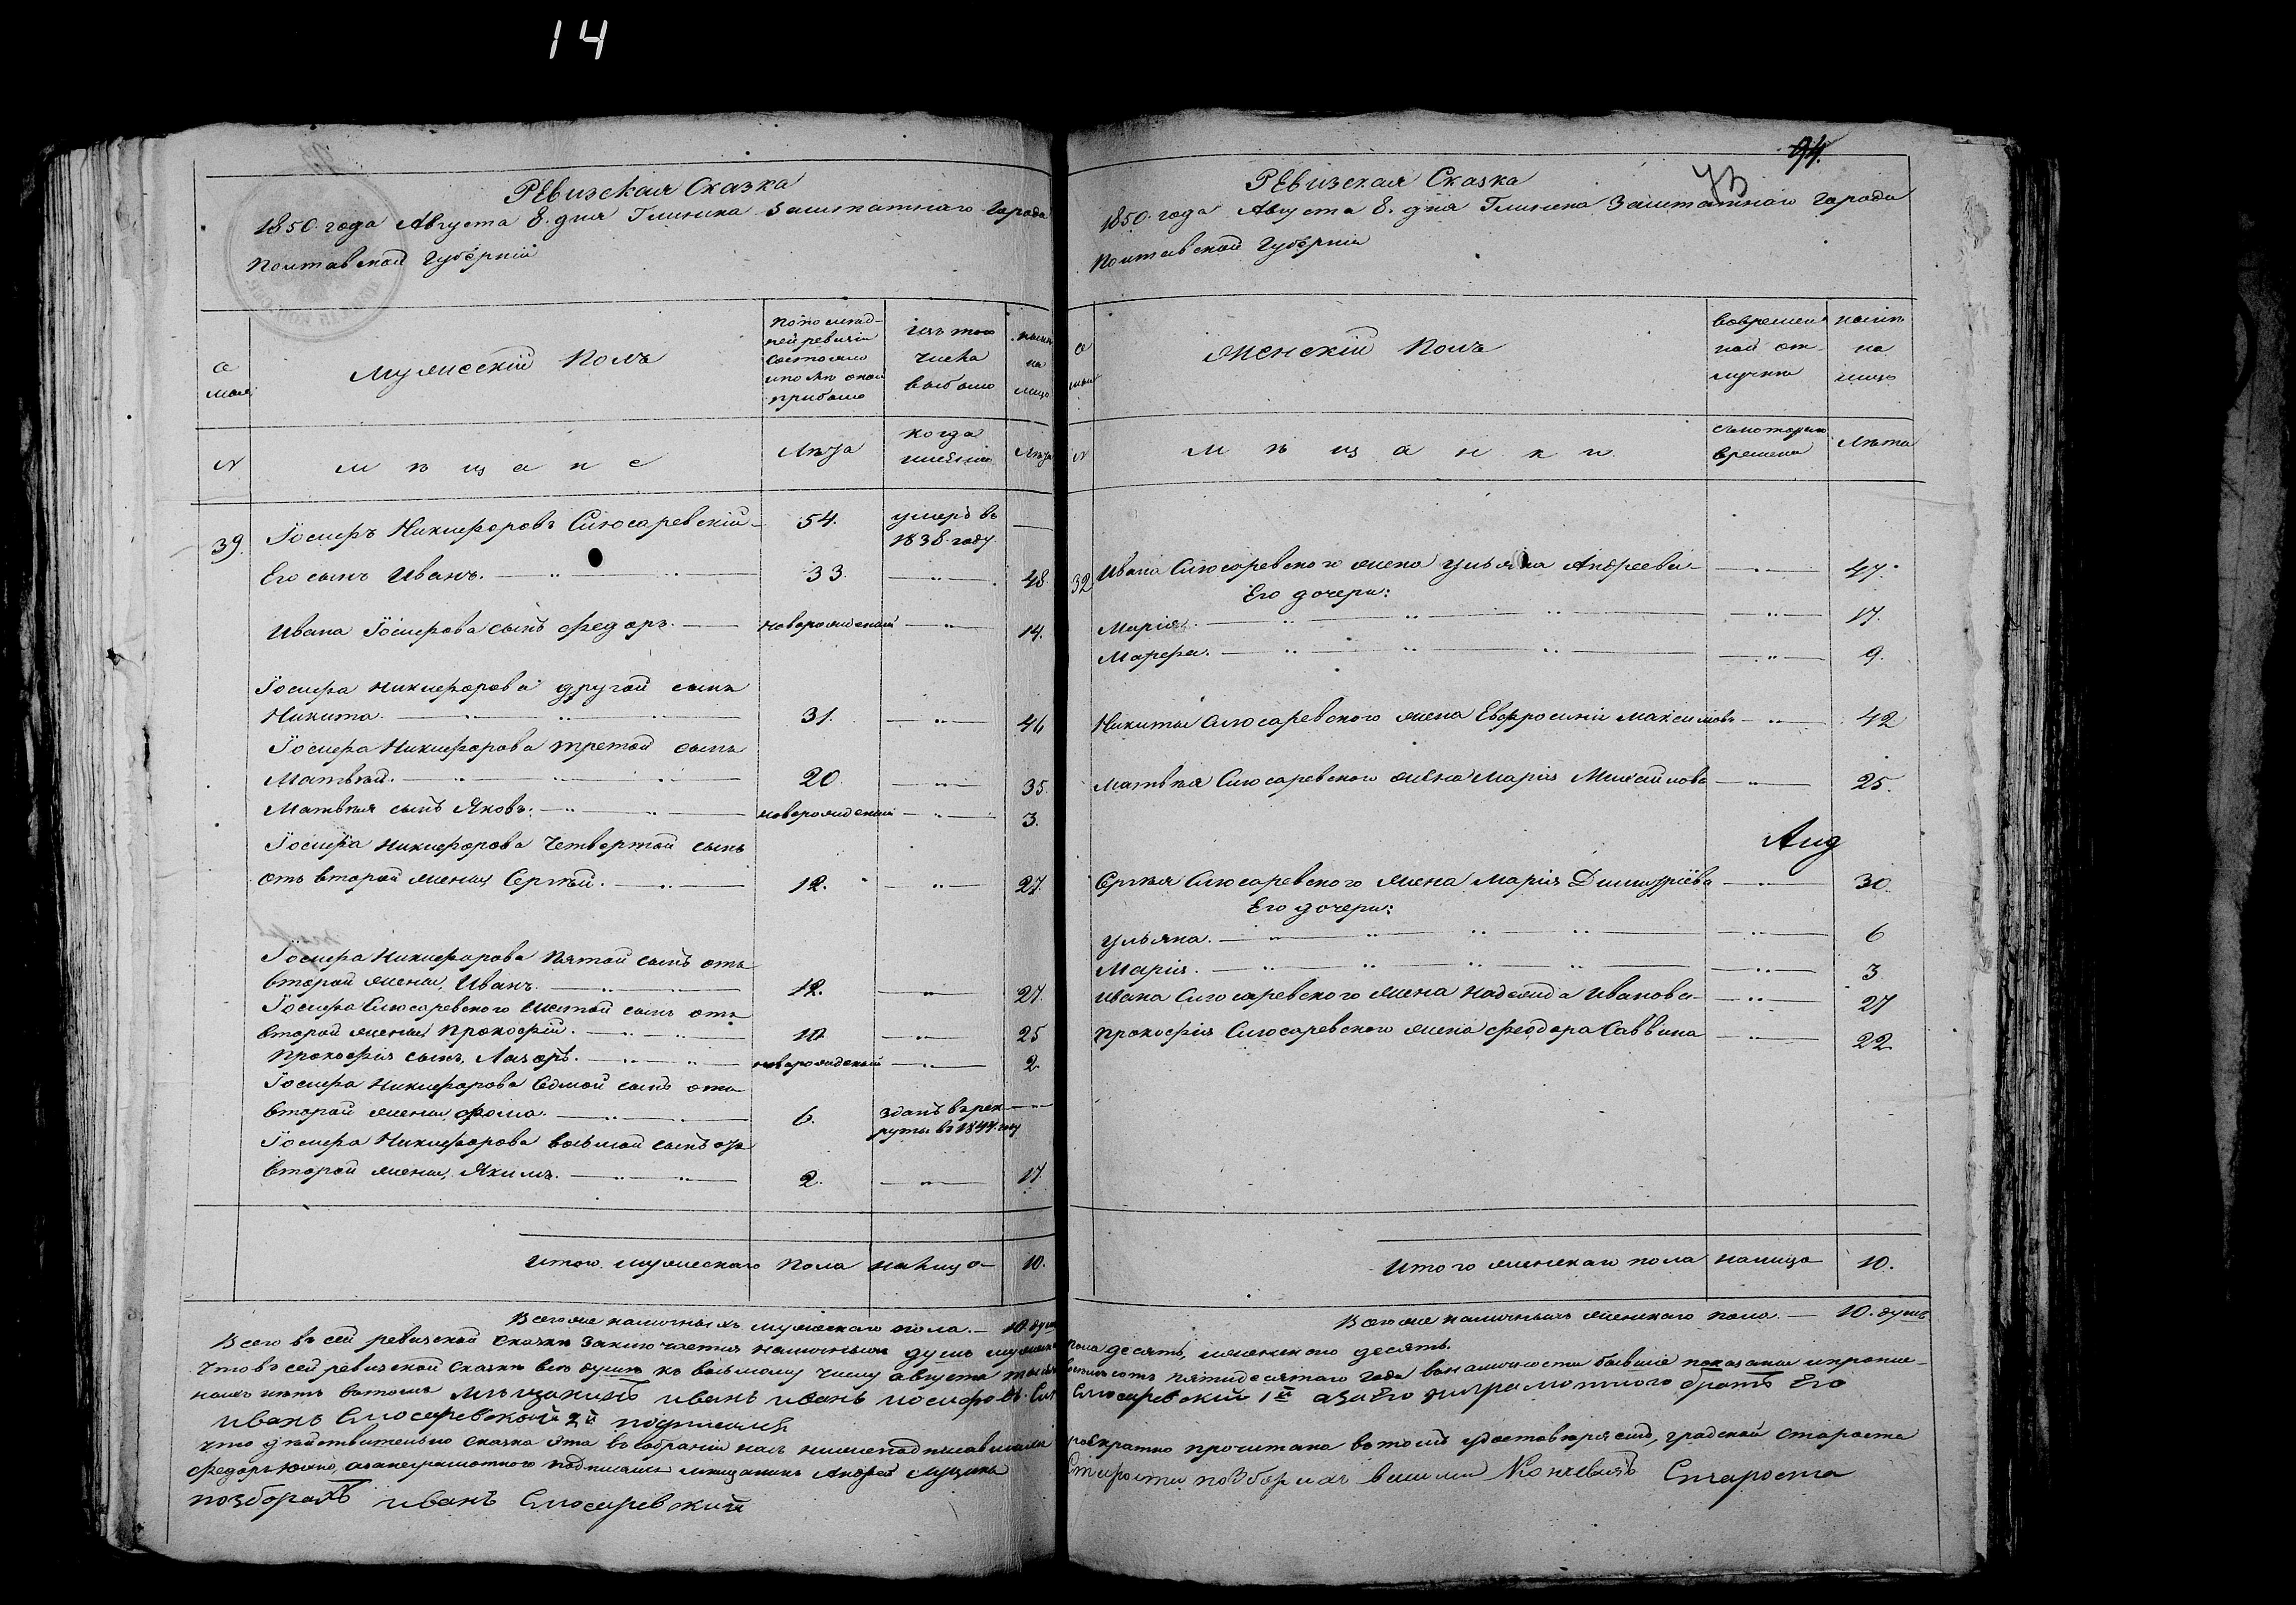 14
Ревизская Сказка
1850 года Августа 8. дня Глинска Заштатнаго Города
Полтавской Губерніи
Мужескій Полъ
По послед-
ней ревизіи
состояло
и после оной
прибыло
Изъ того
числа
выбыло
ныне
на
лицо
семьи
№
Мѣщане
Лѣта
когда
именно
Лѣта
39. Іосифъ Никифоровъ Слюсаревскій 54. умеръ въ
1838 году
Его сынъ Иванъ. 33. 48.
Ивана Іосифова сынъ Федоръ. новорожденный 14.
Іосифа Никифорова другой сынъ
Никита. 31. 46
Іосифа Никифорова третой сынъ
Матвѣй. 20. 35.
Матвѣя сынъ Яковъ. новорожденный 3.
Іосифа Никифорова четвертой сынъ
отъ второй жены Сергѣй. 12. 27.
Іосифа Никифорова пятой сынъ отъ
второй жены, Иванъ. 12. 27.
Іосифа Слюсаревского шестой сынъ отъ
второй жены Прокофій. 10 25
Прокофія сынъ, Лазорь. новорожденный 2.
Іосифа Никифорова седмой сынъ отъ
второй жены Фома. 6. зданъ в рек
руты в 1844 году
Іосифа Никифорова восьмой сынъ отъ
второй жены, Якимъ. 2. 17.
Итого мужескаго пола налицо 10.
Всего же наличныхъ мужескаго пола. — 10. душ
94.
73
Ревизская Сказка
1850 года Августа 8. дня Глинска Заштатнаго Города
Полтавской Губерніи
Женскій Полъ
вовремен
ной от-
лучке
ныне
на
лицо
№
Мѣщанки
съ котораго
времени
Лѣта
32 Ивана Слюсаревского жена Ульяна Андреева 47.
Его дочери:
Марія. 17.
Марфа. 9.
Никиты Слюсаревского жена Евфросинія Максимов 42
Матвѣя Слюсаревского жена Марія Михайлова 25.
Aug
Сергѣя Слюсаревского жена Марія Димитріева 30.
Его дочери:
Ульяна. 6
Марія. 3
Ивана Слюсаревского жена Надежда Иванова 27
Прокофія Слюсаревского жена Феодора Саввина 22
Итого женскаго пола налицо 10.
Всего же наличныхъ женскаго пола. — 10. душъ
Всего въ сей ревизской сказки заключается наличныхъ душъ мужеска пола десять, женского десять.
Что въ сей ревизской сказки все души къ восьмому числу августа тысяча восемьсот пятидесятаго года в наличности бывшіе показаны и пропис-
ныхъ нетъ в томъ мѣщанинъ иванъ иванъ иосифовъ Слюсаревскій 1й а за его неграмотного братъ Его
иванъ Слюсаревской 2й подписался
что действительно сказка эта в собраніи насъ нижеподписавшихся троекратно прочитана в томъ удостоверяемъ, градской староста
Федоръ а за неграмотного подписался мѣщанинъ Андрей Староста
по зборамъ иванъ Слюсаревский